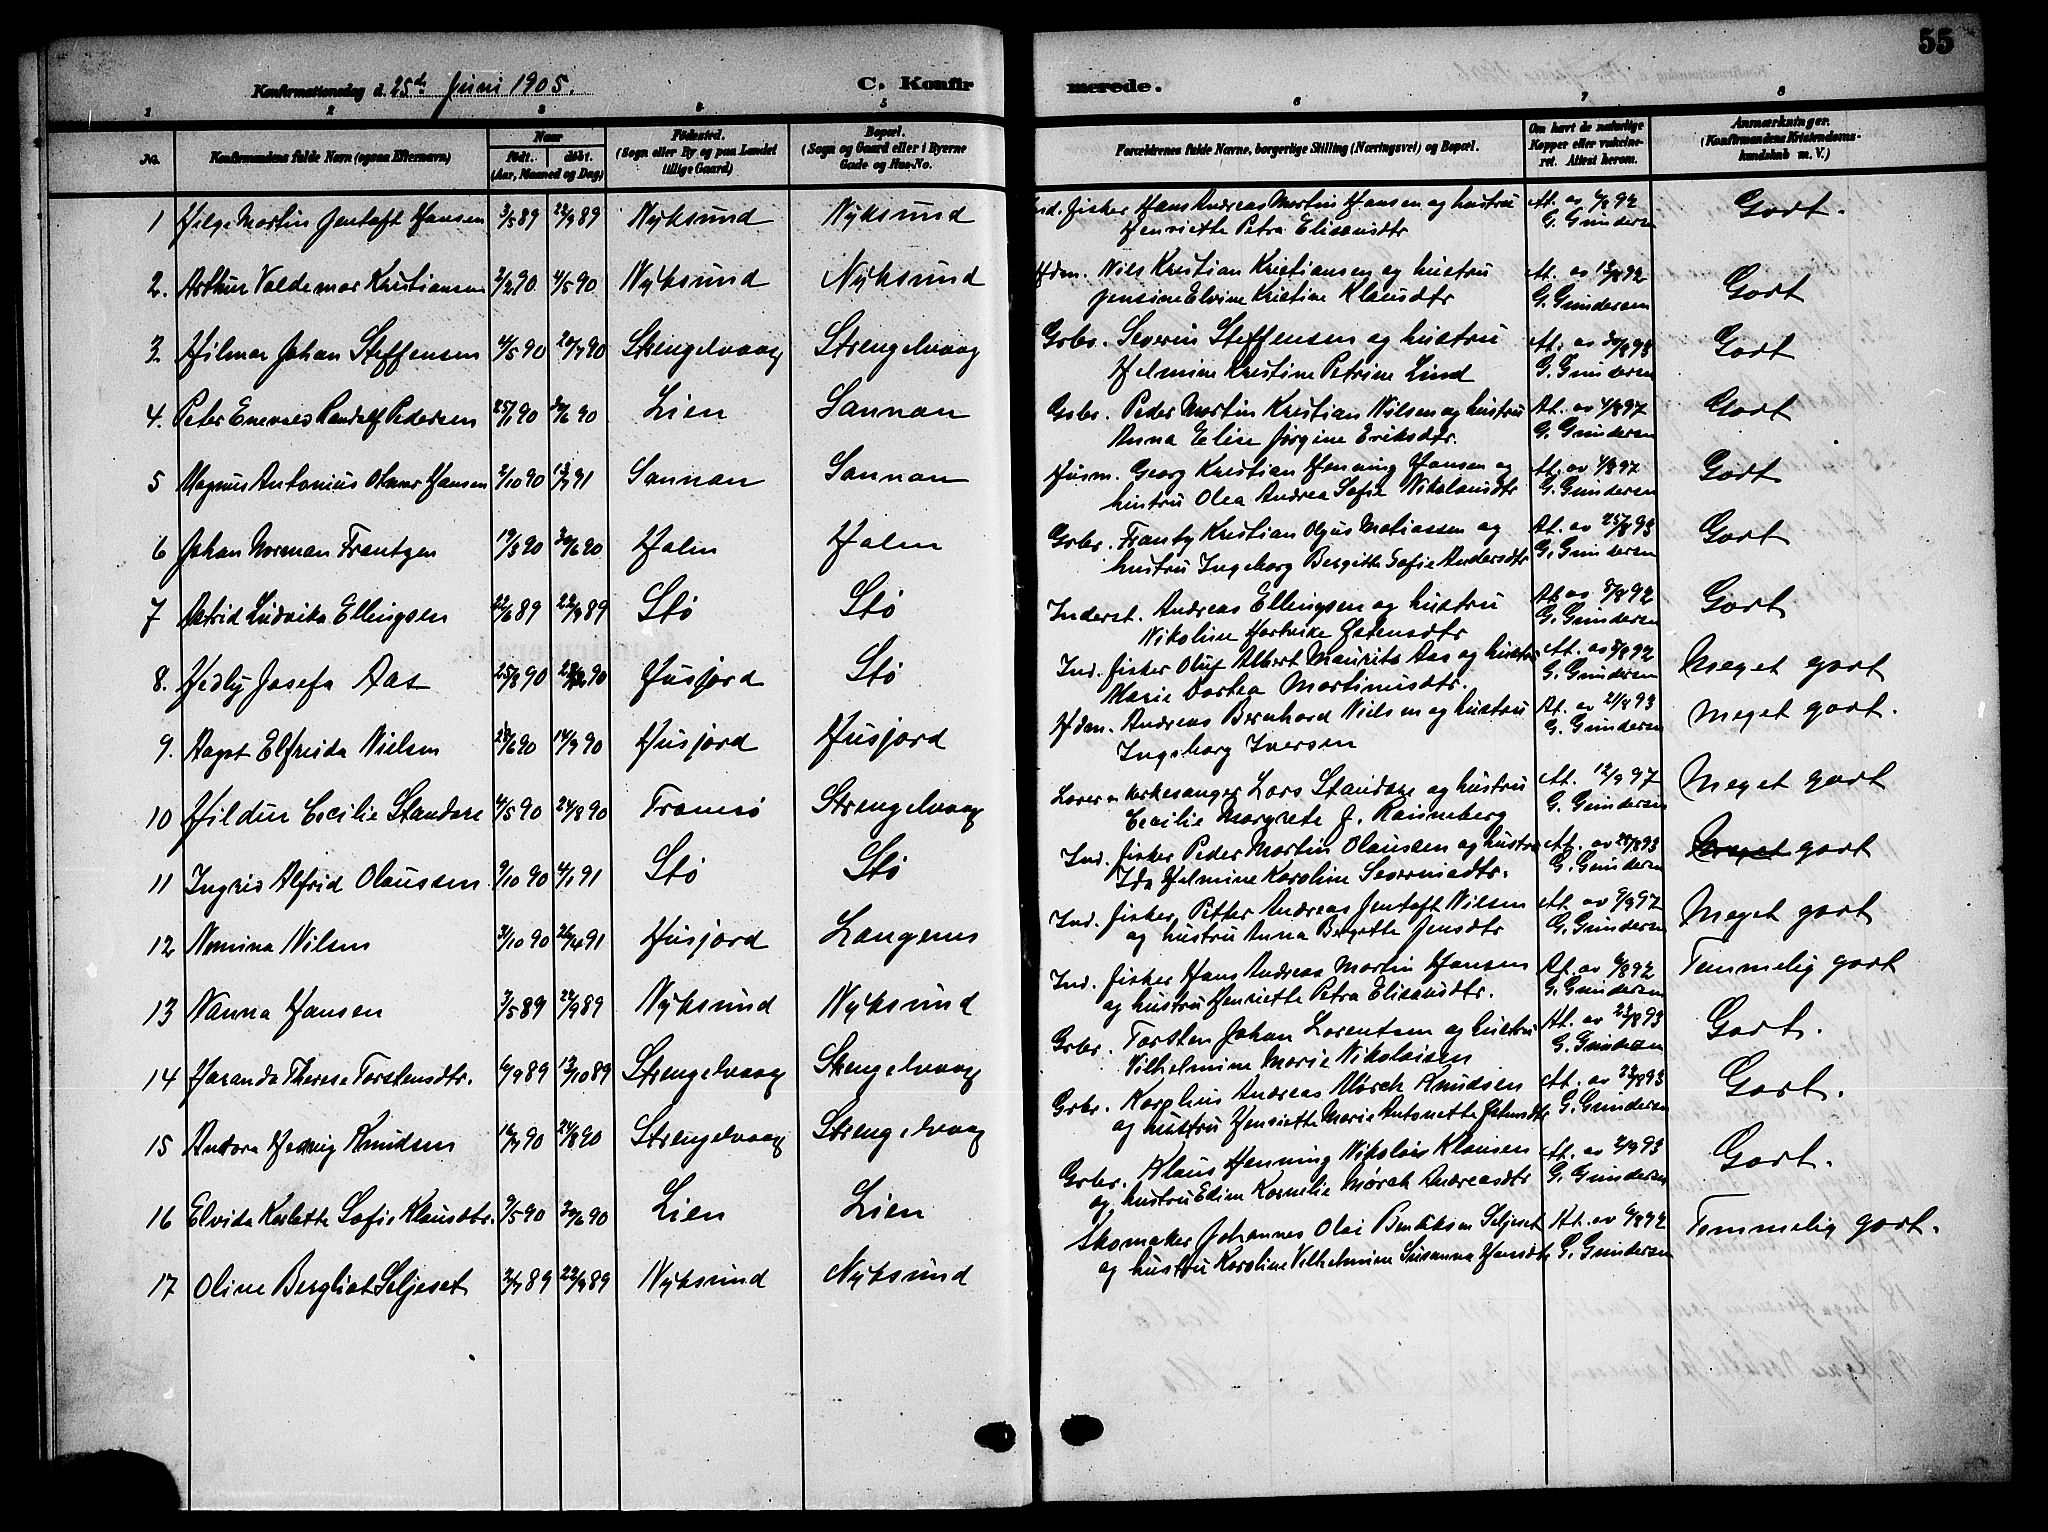 55
Konfirmationsdag d. 25de Juni 1905.
C. Konfirmerede.
1 2 3 4 5 6 7 8
No.
Konfirmandens fulde Navn (ogsaa Efternavn)
Naar
født. døbt.
(Aar, Maaned og Dag)
Fødested.
(Sogn eller By og paa Landet
tillige Gaard)
Bopæl.
(Sogn og Gaard eller i Byerne
Gade og Hus-No.
Forældrenes fulde Navne, borgerlige Stilling (Næringsvei) og Bopæl.
Om havt de naturlige
Kopper eller vaksine-
ret. Attest herom.
Anmærkninger.
(Konfirmandens Kristendoms-
kundskab m. V.)
1 Helge Martin Jentoft Hansen 3/5 89 22/9 89 Nyksund Nyksund Ind. Fisker Hans Andreas Martin Hansen og hustru At. av 6/8 92 Godt.
Henriette Petra Elisæusdtr G. Gundersen
2. Arthur Valdemar Kristiansen 2/2 90 4/5 90 Nyksund Nyksund Hdm. Nils Kristian Kristiansen og hustru At. av 18/8 92 Godt
Jensine Elvine Kristine Klausdtr G. Gundersen
3. Hilmar Johan Steffensen 4/5 90 20/7 90 Strengelvaag Strengelvaag Grbr. Severin Steffensen og hustru At. av 30/8 98 Godt
Helmine Kristine Petrine Lind G. Gundersen
4. Peter Enevold Randolf Pedersen 25/1 90 Lien Sannan Grbr. Peder Martin Kristian Nilsen og hustru At. av 4/8 97 Godt
Anna Elise Jørgine Eriksdtr. G. Gundersen
5 Magnus Antonius Otmar Hansen 2/10 90 Sannan Sannan Husm. Georg Kristian Henning Hansen og At. av 4/8 97 Godt
hustru Olea Andrea Sofie Nikolausdtr G. Gundersen
6 Johan Norman Frantzen 19/3 90 Holm Holm Grbr. Frantz Kristian Oljus Matiassen og At. av 25/8 93 Godt
hustru Ingeborg Bergitte Sofie Andersdtr G. Gundersen
7 Astrid Ludvika Ellingsen 22/6 89 22/9 89 Stø Stø Inderst. Andreas Ellingsen og hustru At. av 8/8 92 Godt
Nikoline Hartvike G. Gundersen
8. Hedly Josefa Aas 25/8 90 Husjord Stø Ind. Fisker Oluf Albert Maurits Aas og hustru At. av 8/8 92 Meget godt
Marie Dortea Martinusdtr. G. Gundersen
9. Aagot Elfrida Nielsen 14/9 90 Husjord Husjord Hdm. Andreas Bernhard Nielsen og hustru At. av 21/8 93 Meget godt.
Ingeborg Iversen G. Gundersen
10 Hildur Cecilie Standare 4/5 90 24/8 90 Tromsø Strengelvaag Lærer og kirkesanger Lars Standare og hustru At. 12/9 97 Meget godt
Cecilie Margrete J. Rauneberg G. Gundersen
11 Ingrid Alfrid Olaussen 9/10 90 4/1 91 Stø Stø Ind. Fisker Peder Martin Olaussen og hustru At. av 28/8 93 godt
Ida Helmine Karoline Severinsdtr. G. Gundersen
12 Nomina Nilsen 3/10 90 26/4 91 Husjord Langenes Ind. Fisker Petter Andreas Jentoft Nilsen At. av 9/9 97 Meget godt
og hustru Anna Bergitte Jensdtr G. Gundersen
13 Nanna Hansen 3/5 89 22/9 89 Nyksund Nyksund Ind. Fisker Hans Andreas Martin Hansen At. av 6/8 92 Temmelig godt
og hustru Henriette Petra Elisæusdtr. G. Gundersen
14 Haranda Therese Torstensdtr. 6/9 89 13/10 89 Strengelvaag Strengelvaag Grbr. Torsten Johan Lorentsen og hustru At. av 23/8 93 Godt.
Vilhelmine Marie Nikolaisen G. Gundersen
15 Andora Hedvig Knudsen 16/7 90 24/8 90 Strengelvaag Strengelvaag Grbr. Karelius Andreas Mørch Knudsen At. av 23/8 93 Godt.
og hustru Henriette Marie Antonette G. Gundersen
16 Elvida Karlotte Sofie Klausdtr. 9/5 90 Lien Lien Grbr. Klaus Henning Nikolai Klausen At. av 2/9 93 Godt.
og hustru Edine Kornelie Mørch Andreasdtr G. Gundersen
17 Oline Bergliot Seljeset 3/7 89 22/9 89 Nyksund Nyksund Skomaker Johannes Olai Bendiksen Seljeset At. av 6/8 92 Temmelig godt.
og hustru Karoline Vilhelmine Susanna Hansdtr G. Gundersen